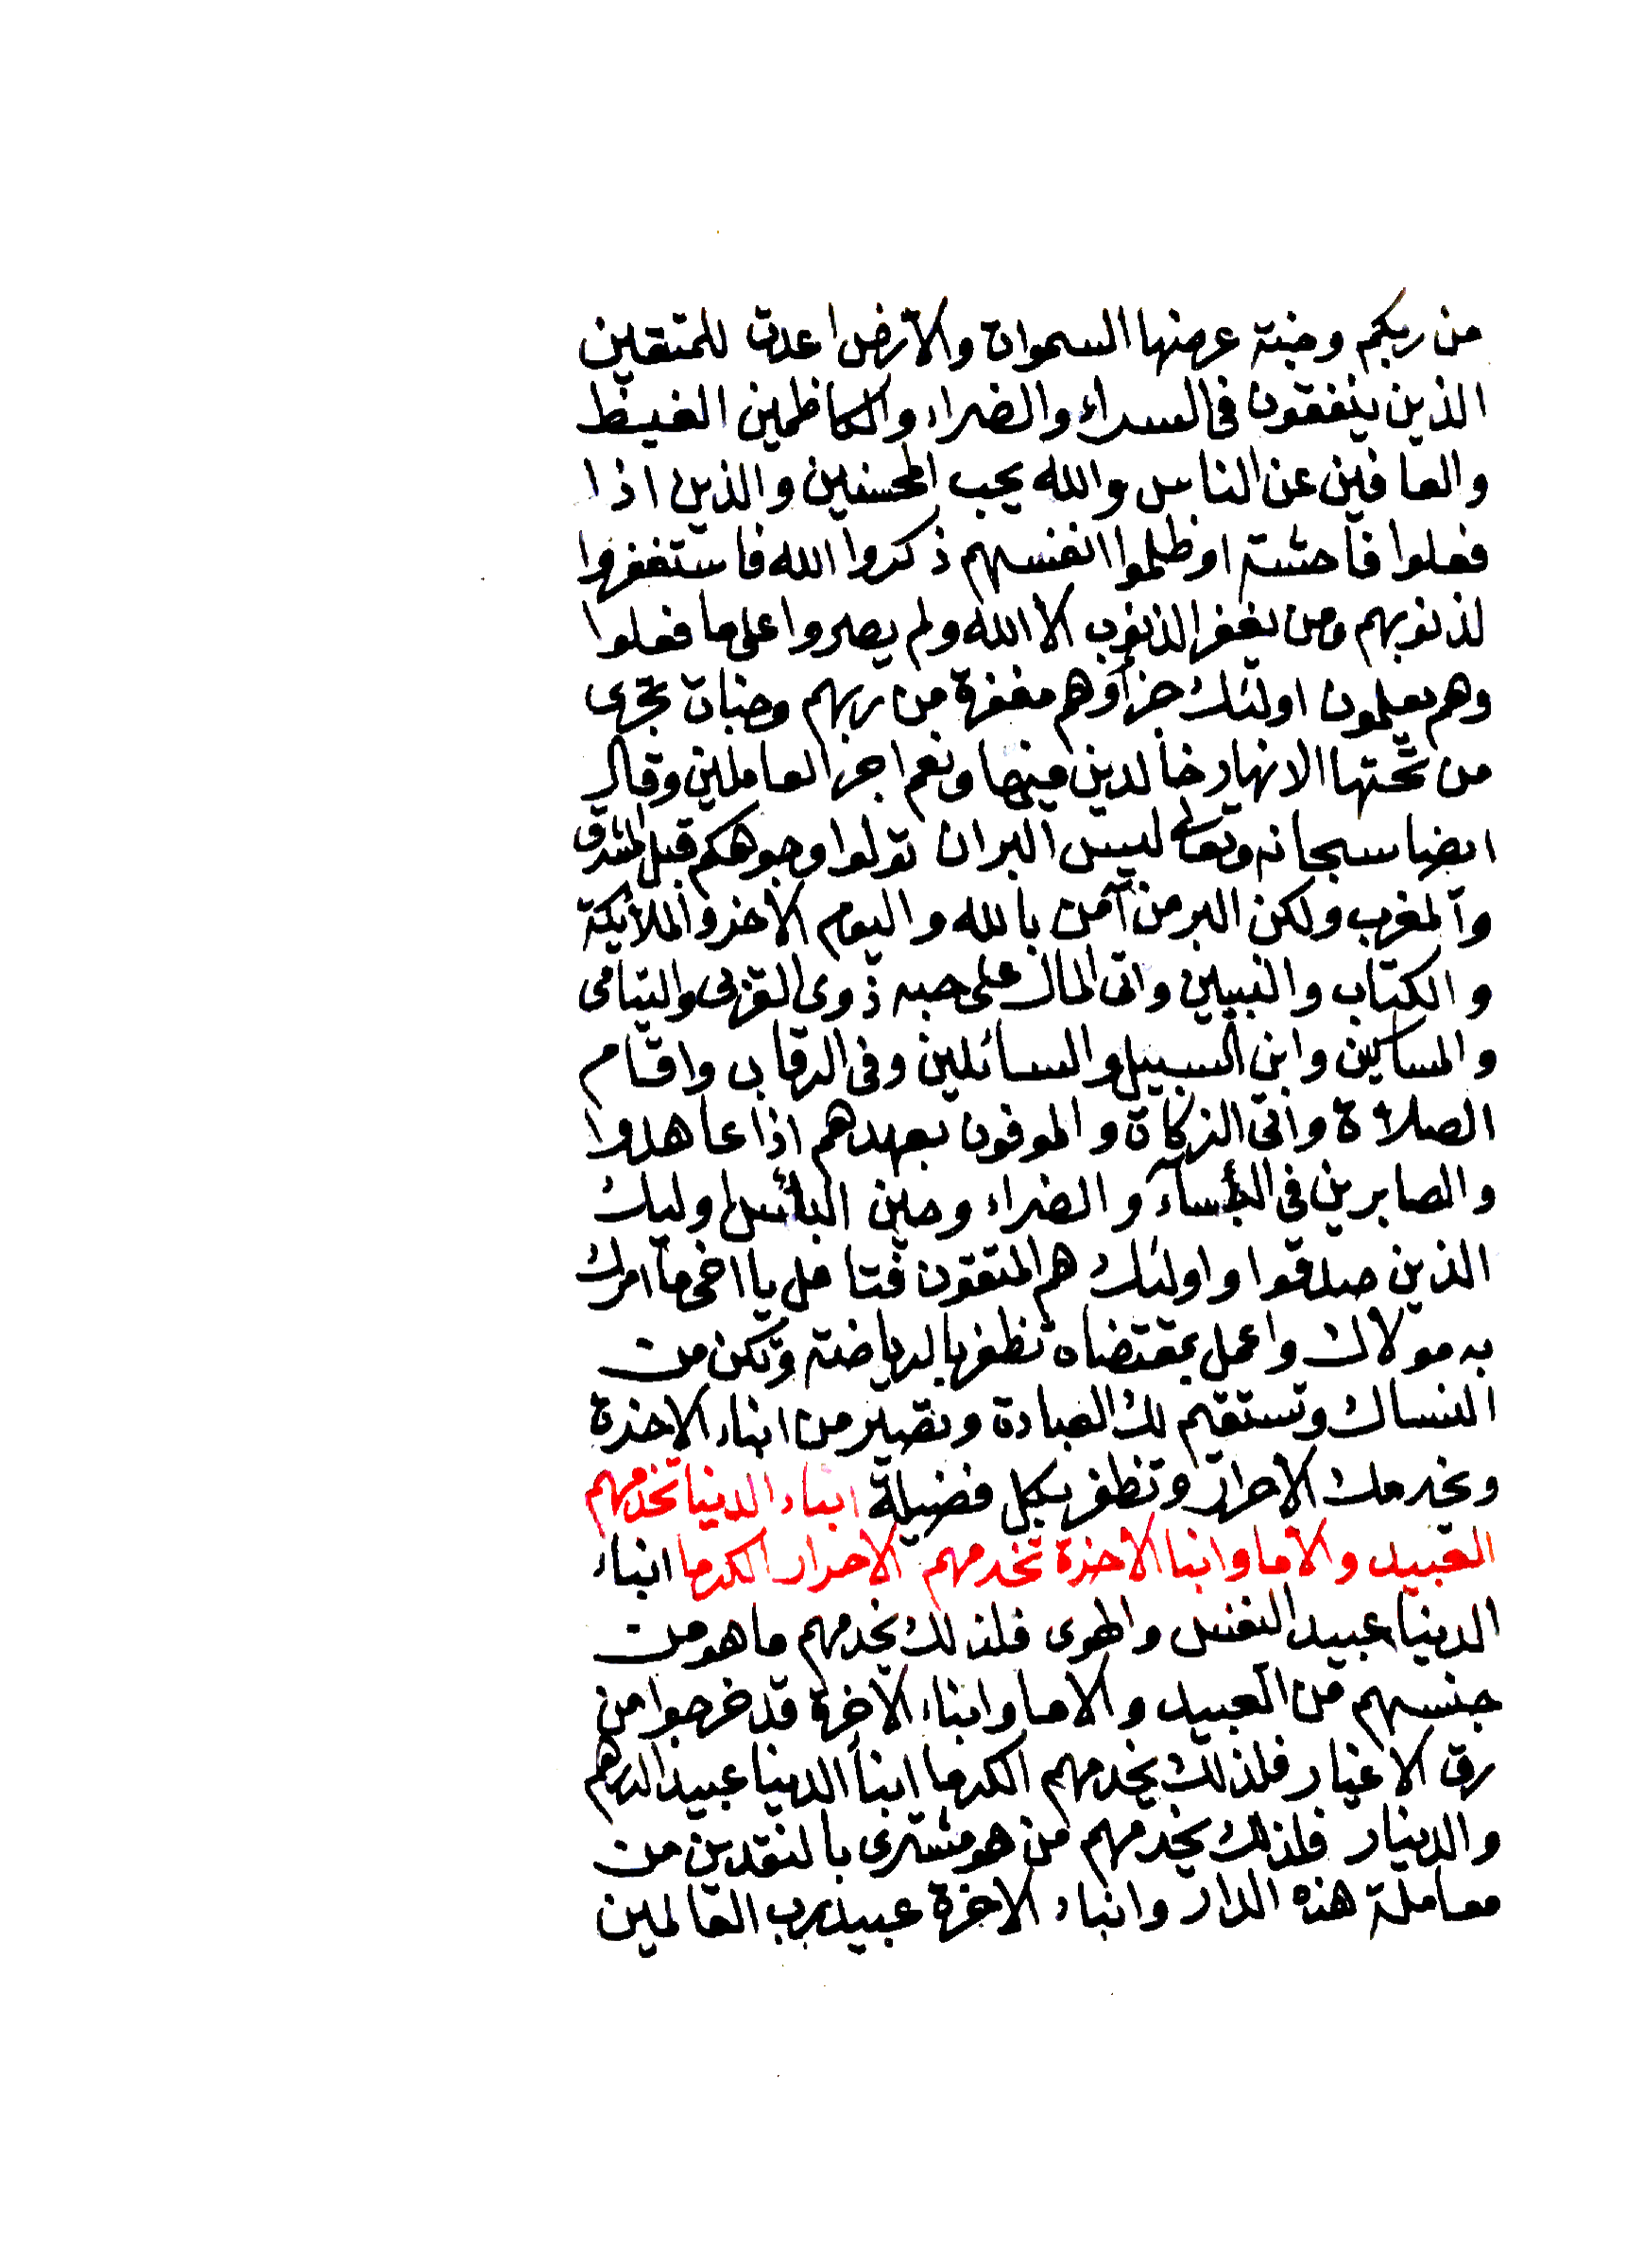 من ربكم وجنة عرضها السموات والارض اعدت للمتقين
الذين ينفقون في السراء والضراء والكاظمين الغيظ
والعافين عن الناس والله يحب المحسنين والذين اذا
فعلوا فاحشة او ظلموا انفسهم ذكروا الله فاستغفروا
لذنوبهم ومن يغفر الذنوب الا الله ولم يصروا على ما فعلوا
وهم يعلمون اولئك جزآؤهم مغفرة من ربهم وجنات تجرى
من تحتها الانهار خالدين فيها ونعم اجر العاملين وقال
ايضا سبحانه وتعالى ليس البر ان تولوا وجوهكم قبل المشرق
والمغرب ولكن البر من آمن بالله واليوم الاخر والملائكة
والكتاب والنبيين واتى المال على حبه ذوى القربى واليتامى
والمساكين وابن السبيل والسائلين وفى الرقاب واقام
الصلاة واتى الزكاة والموفون بعهدهم اذا عاهدوا
والصابرين فى البأسآء والضراء وحين البأس اوليك
الذين صدقوا واولئك هم المتقون فتامل يا اخى ما امرك
به مولاك واعمل بمقتضاه تظفر بالرياضة وتكن من
النساك وتستقيم لك العبادة وتصير من ابناء الاخرة
وتخدمك الاحرار وتظفر بكل فضيلة ابناء الدنيا تخدمهم
العبيد والاما وابنا الاخرة تخدمهم الاحرار الكرما ابناء
الدنيا عبيد النفس والهوى فلذلك يخدمهم ما هو من
جنسهم من العبيد والاما وابناء الاخرة قد خرجوا من
رق الاغيار فلذلك يخدمهم الكرما ابنا الدنيا عبيد الدرهم
والدينار فلذلك يخدمهم من هو مشترى بالنقدين من
معاملة هذه الدار وابناء الاخرة عبيد برب العالمين